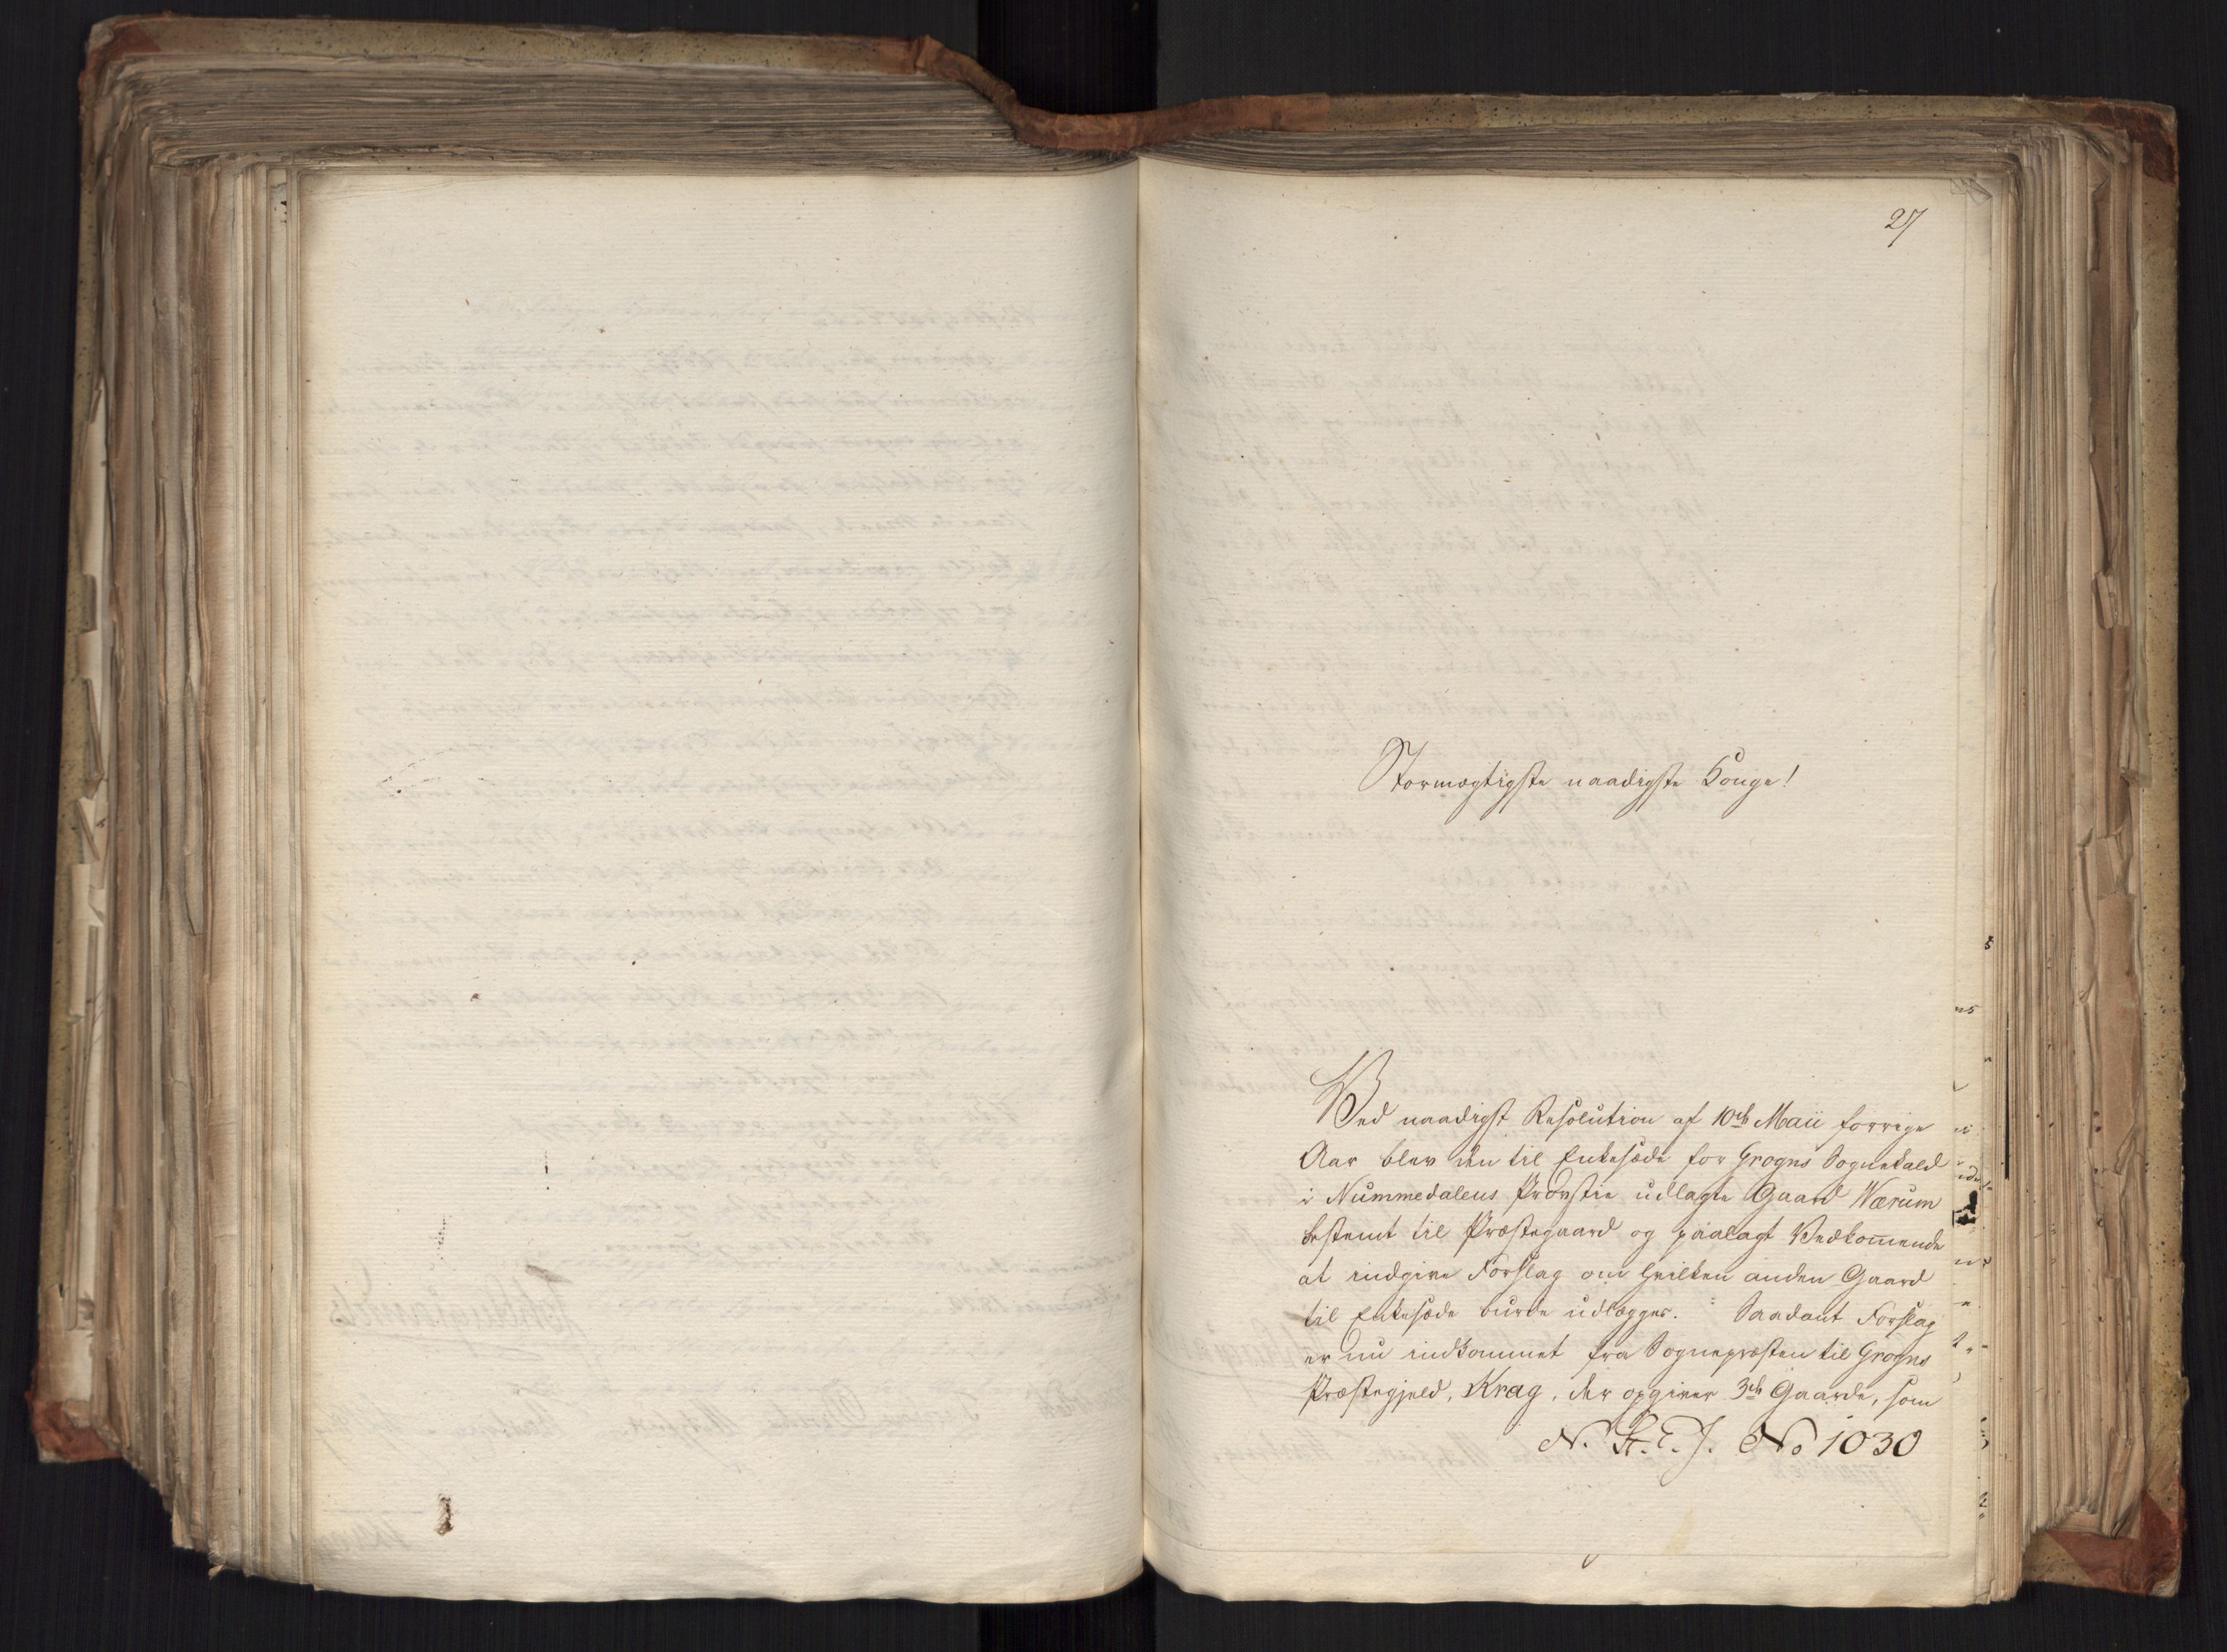 27
Stormægtigste naadigste Konge!
Ved naadigst Resolution af 10de Maii forrige
Aar blev den til Enkesæde for Grogns Sognekald
i Nummedalens Provstie udlagte Gaard Wærum
bestemt til Præstegaard og paalagt Vedkommende
at indgive Forslag om hvilken anden Gaard
til Enkesæde burde udlægges. Saadant Forslag
er nu indkommet fra Sognepræsten til Grogns
Præstegjeld, Krag, der opgiver 3de Gaarde, som
N. St. E. J. No 1030